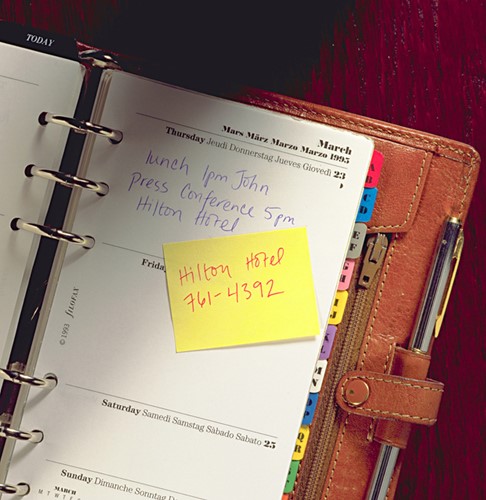 TODAY
March
Mars März Marzo Marzo 1995
Thursday Jeudi Donnerstag Jueves Giovedì 23
lunch 1pm John
Press Conference 5pm
Hilton Hotel
Hilton Hotel
761-4392
© 1993 filofax
Saturday Samedi Samstag Sàbado Sabato 25
Sunday Dimanche Sonntag
MARCH
M T W T F
A
B
C
D
E
F
G
I
J
M
N
Q
R